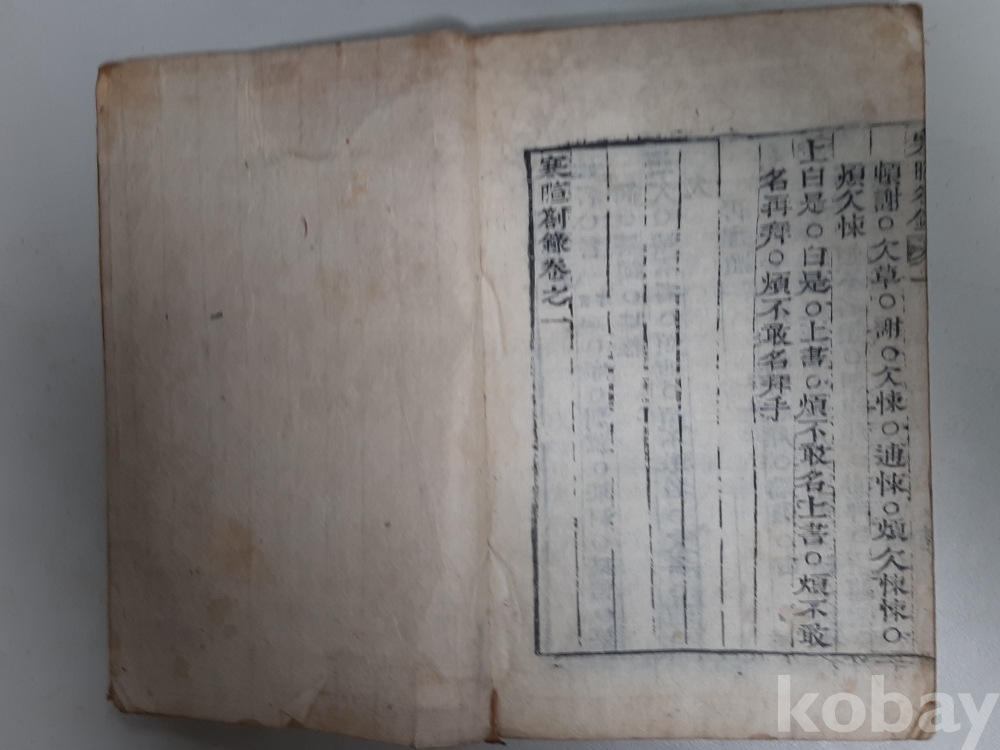 頓謝○欠草○謝○欠悚○逋悚○煩欠悚悚○
煩欠悚
上白是○白是○上書○煩不敢名上書○煩不敢
名再拜○煩不敢名拜手
寒暄劄錄卷之一
kobay